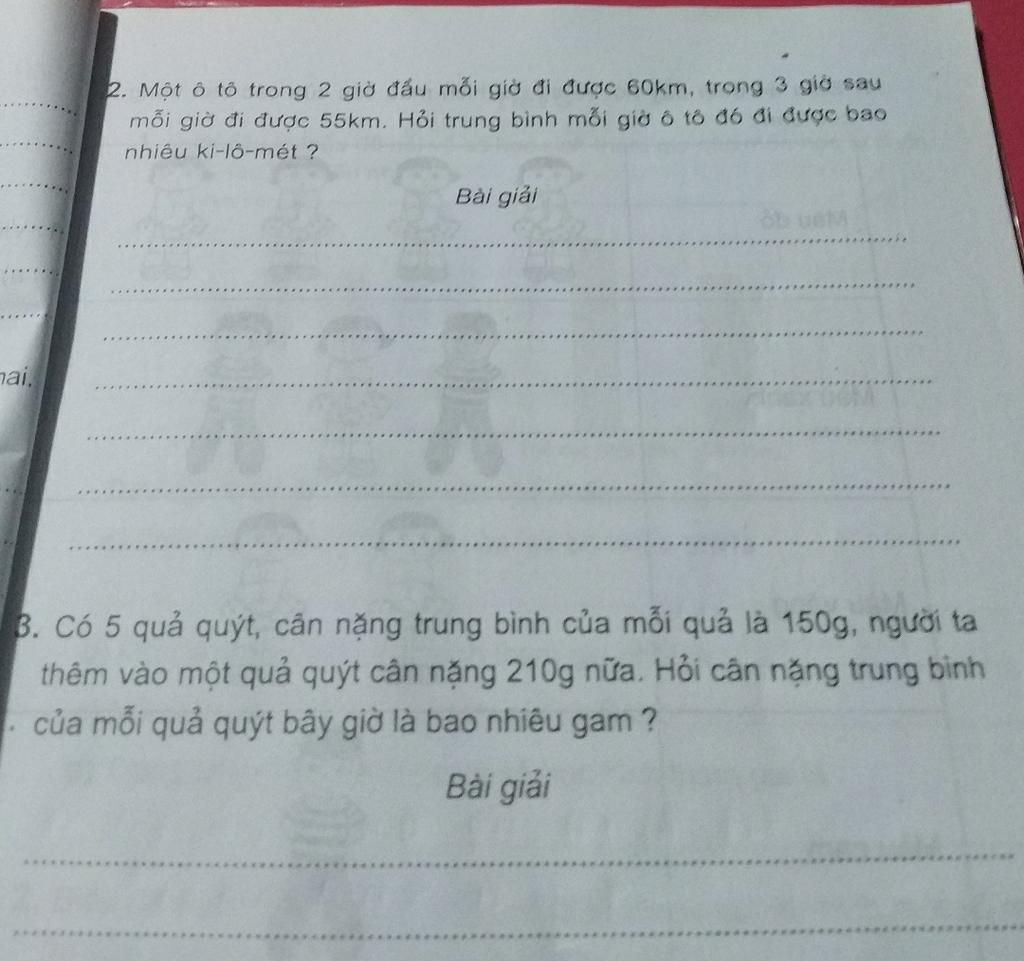 2. Một ô tô trong 2 giờ đầu mỗi giờ đi được 60km, trong 3 giờ sau
mỗi giờ đi được 55km. Hỏi trung bình mỗi giờ ô tô đó đi được bao
nhiêu ki-lô-mét ?
Bài giải
3. Có 5 quả quýt, cân nặng trung bình của mỗi quả là 150g, người ta
thêm vào một quả quýt cân nặng 210g nữa. Hỏi cân nặng trung bình
của mỗi quả quýt bây giờ là bao nhiêu gam ?
Bài giải